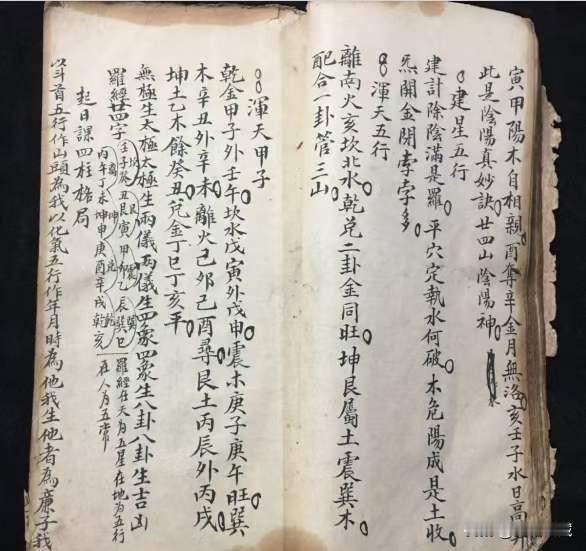 寅甲陽木自相親酉奪辛金月無洛亥壬子水日高
此是陰陽真妙訣廿四山陰陽神
建星五行
建計除陰滿是羅平穴定執水何破木危陽成是土收
炁開金閉孛孛多
渾天五行
離南火亥坎北水乾兌二卦金同旺坤艮屬土震巽木
配合一卦管三山
渾天甲子
乾金甲子外壬午坎水戊寅外戊申震木庚子庚午旺巽
木辛丑外辛未離火己卯己酉尋艮土丙辰外丙戌
坤土乙木餘癸丑兌金丁巳丁亥平
無極生太極太極生兩儀兩儀生四象四象生八卦八卦生吉凶
羅經廿四字
坎艮震巽
壬子癸丑艮寅甲卯乙辰巽巳
丙午丁未坤申庚酉辛戌乾亥
離坤兌乾
羅經在天為五星在地為五行
在人為五常
起日課四柱格局
以斗首五行作山頭為我以化氣五行作年月時為他我生他者為廉子我